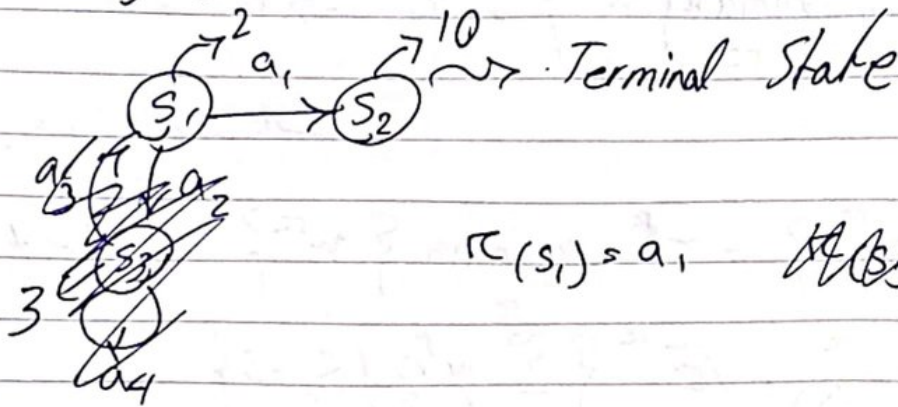 2 10
a₁ Terminal State
S₁ S₂
a₃ a₂
S₃ π(S₁) = a₁
3
a₄